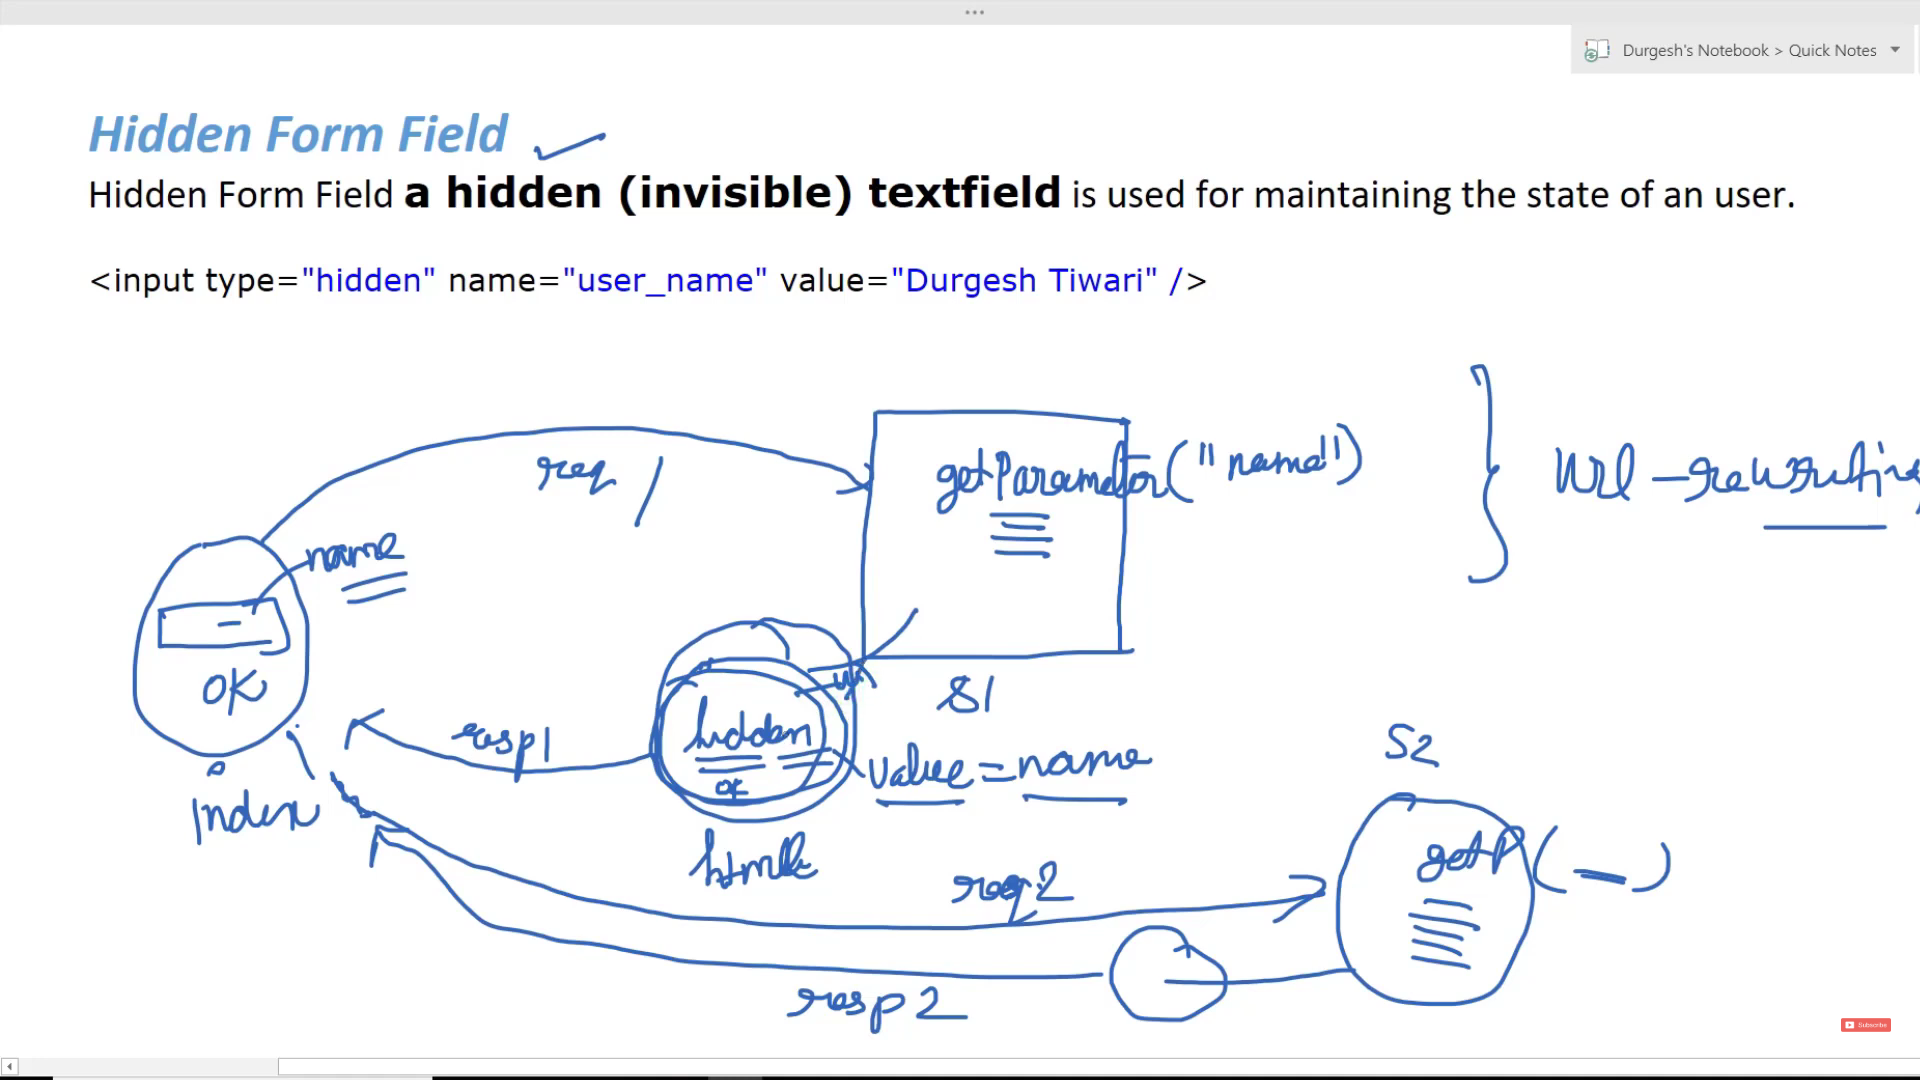 Durgesh's Notebook > Quick Notes
Hidden Form Field
Hidden Form Field a hidden (invisible) textfield is used for maintaining the state of an user.
<input type="hidden" name="user_name" value="Durgesh Tiwari" />
req 1
getParameter("name")
Url-rewriting
name
OK
S1
resp1
hidden
value=name
S2
index
html
getP(—)
req 2
resp 2
Subscribe